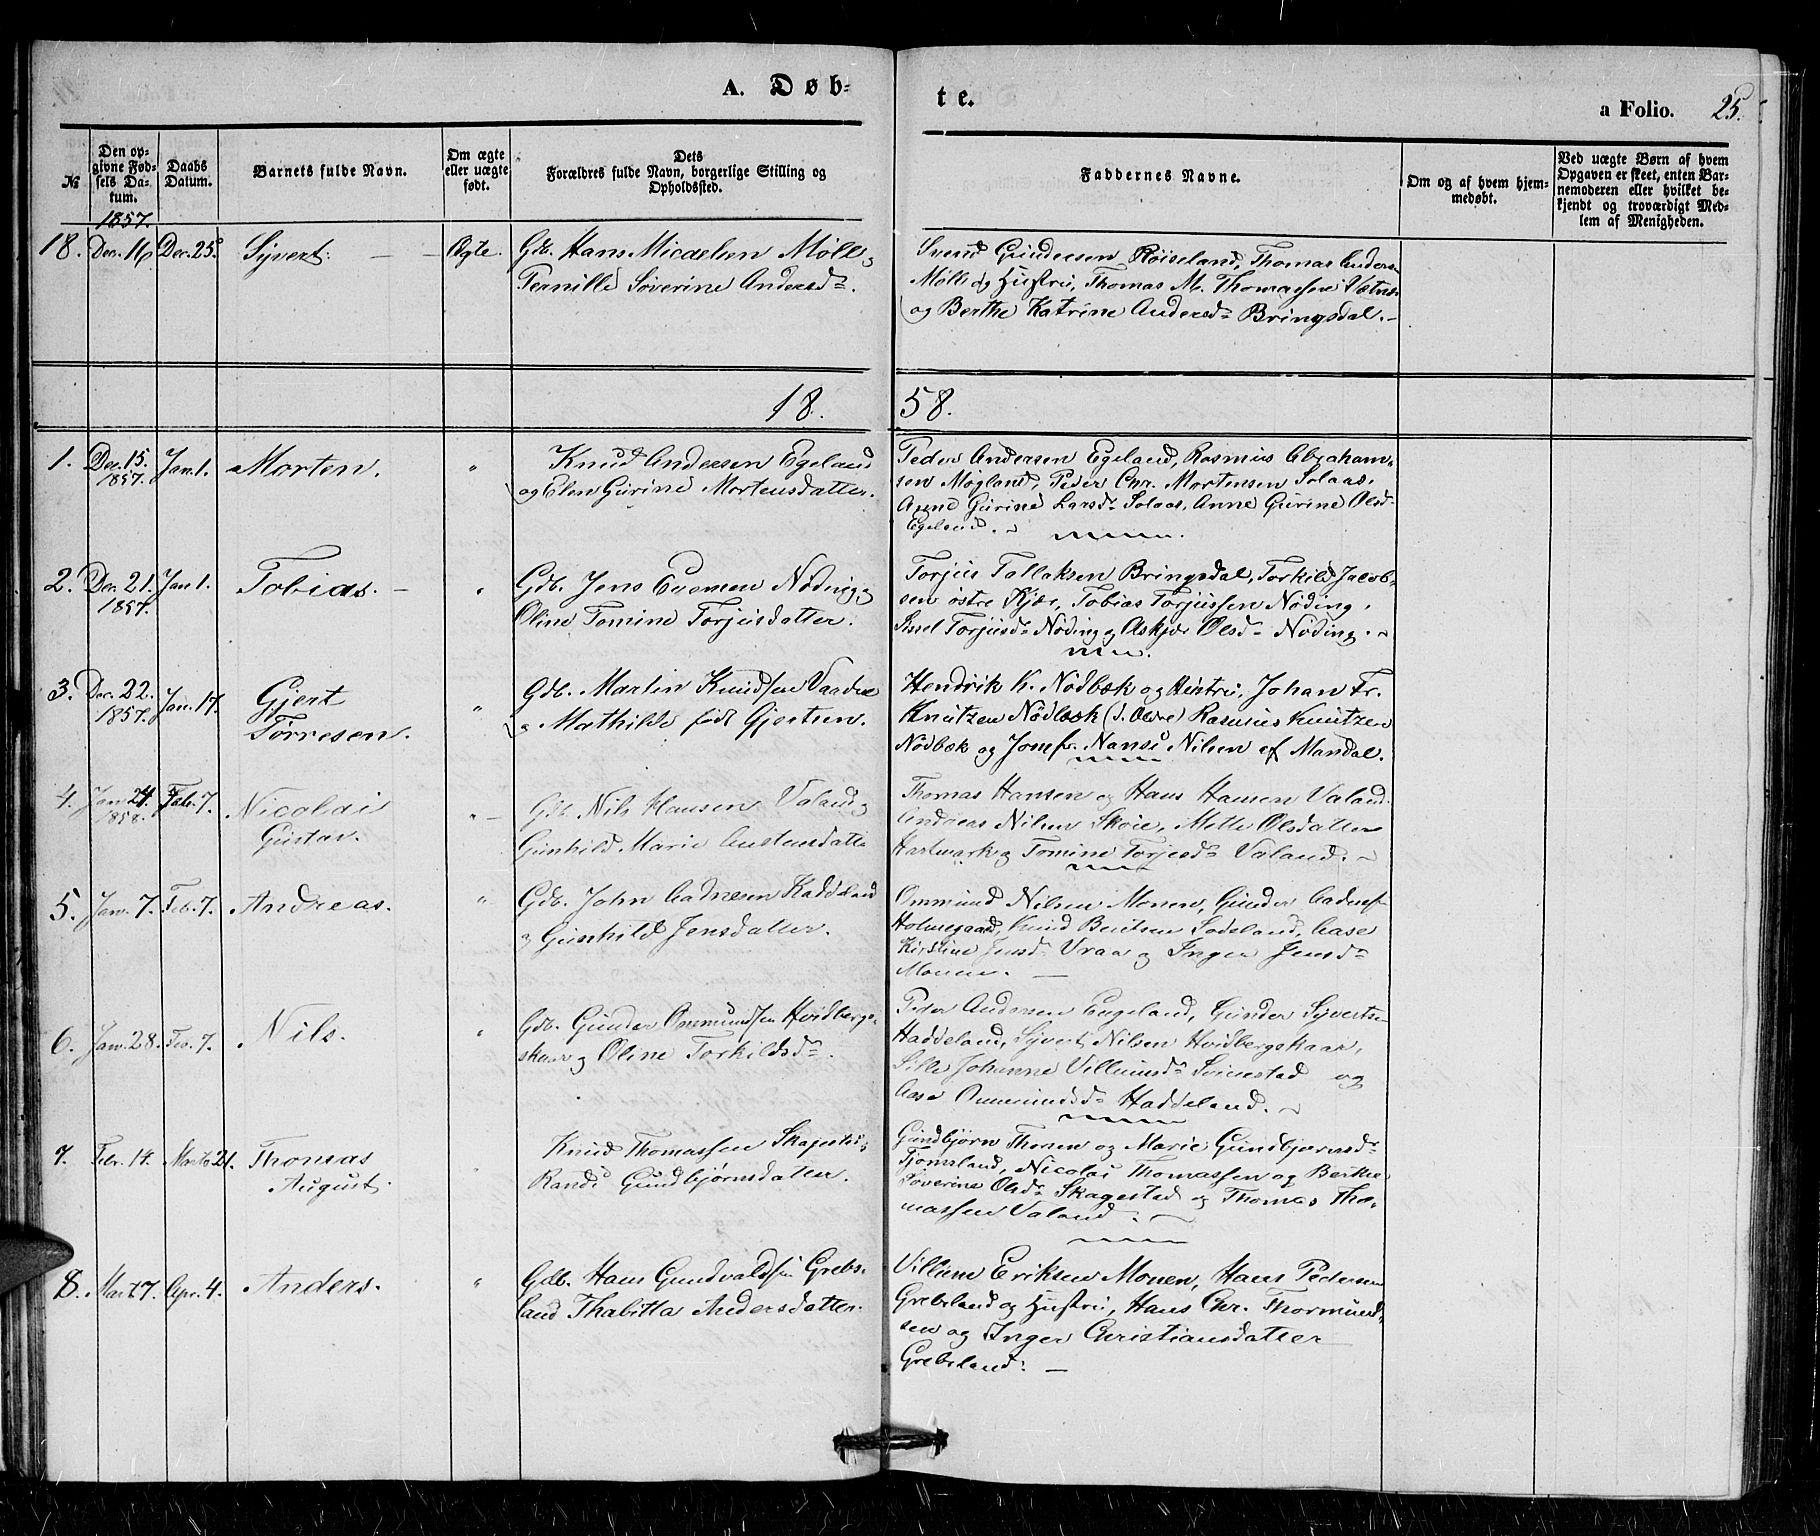 A. Døb-
te.
a Folio. 25.
№
Den op-
givne Fød-
sels Da-
tum.
Daabs
Datum.
Barnets fulde Navn.
Om ægte
eller uægte
født.
Dets
Forældres fulde Navn, borgerlige Stilling og
Opholdssted.
Faddernes Navne.
Om og af hvem hjem-
medøbt.
Ved uægte Børn af hvem
Opgaven er skeet, enten Bar-
nemoderen eller hvilket be-
kjendt og troværdigt Med-
lem af Menigheden.
1857.
18. Dec. 16 Dec. 25. Syvert. Ægte. Gdb. Hans Micaelsen Möll &
Pernille Severine Andersd.
Svend Gundersen Röiseland, Thomas Anders
Mölle og Hustru, Thomas M. Thomassen
og Berthe Katrine Andersd. Bringsdal.
18. 58.
1. Dec. 15. 1857. Jan. 1. Morten. " Knud Andersen Egeland
og Elen Gurine Mortensdatter.
Peder Andersen Egeland, Rasmus Abraham-
sen Mögland, Peder Chr. Mortensen Solaas,
Anne Gurine Larsd. Solaas, Anne Gurine Olsd.
Egeland.
2. Dec. 21. 1857. Jan. 1. Tobias. " Gdb. Jens Evensen Nöding &
Oline Tomine Torjusdatter.
Torjus Tallaksen Bringsdal, Torkild Jacob-
sen östre Kjær, Tobias Torjussen Nöding,
Torjusd. Nöding & Askjer Olsd. Nöding.
3. Dec. 22. 1857. Jan. 17. Gjert
Törresen. " Gdb. Martin Knudsen
& Mathilde födt Gjertsen.
Hendrik K. Nödbæk og Hustru, Johan Fr.
Knutzen Nödbæk Rasmus Knutzen
Nödbæk og Jomfr. Nansi Nilsen af Mandal.
4. Jan. 24. 1858. Feb. 7. Nicolai
Gustav. " Gdb. Nils Hansen Valand &
Gunhild Marie Austensdatter
Thomas Hansen og Hans Hansen Valand.
Andreas Nilsen Skoie, Mette Olsdatter
Hartmark & Tomine Torjusd. Valand.
5. Jan. 7. Feb. 7. Andreas. " Gdb. John Aadnesen Haddeland
& Gunhild Jensdatter.
Ommund Nilsen Monen, Gunder Aadnes.
Holmegaard, Knud Bentsen Sodeland, Aase
Kirstine Jensd. Vraa og Inger Jensd.
Monen.
6. Jan. 28. Feb. 7. Nils. " Gdb. Gunder Ommundsen Hvidbergs-
skaar & Oline Torkildsd.
Peder Andersen Engeland, Gunder Syvertsen
Haddeland, Syvert Nilsen Hvidbergskaar,
Sille Johanne Villumsd. Svinestad og
Aase Ommundsd. Haddeland.
7. Febr. 14. Marts 21. Thomas
August. " Knud Thomassen Skagestad
Randi Gundbjørnsdatter.
Gundbjørn Thosen og Marie Gundbjørnsd.
Tjomsland, Nicolai Thomassen og Berthe
Severine Olsd. Skagestad og Thomas Tho-
massen Valand.
8. Mart. 7. Apr. 4. Anders. " Gdb. Hans Gundvaldsen Grebs-
land Thabitta Andersdatter.
Villum Eriksen Monen, Hans Pedersen
Grebsland og Hustru, Hans Chr. Thormund-
sen og Inger Christiansdatter
Grebsland.